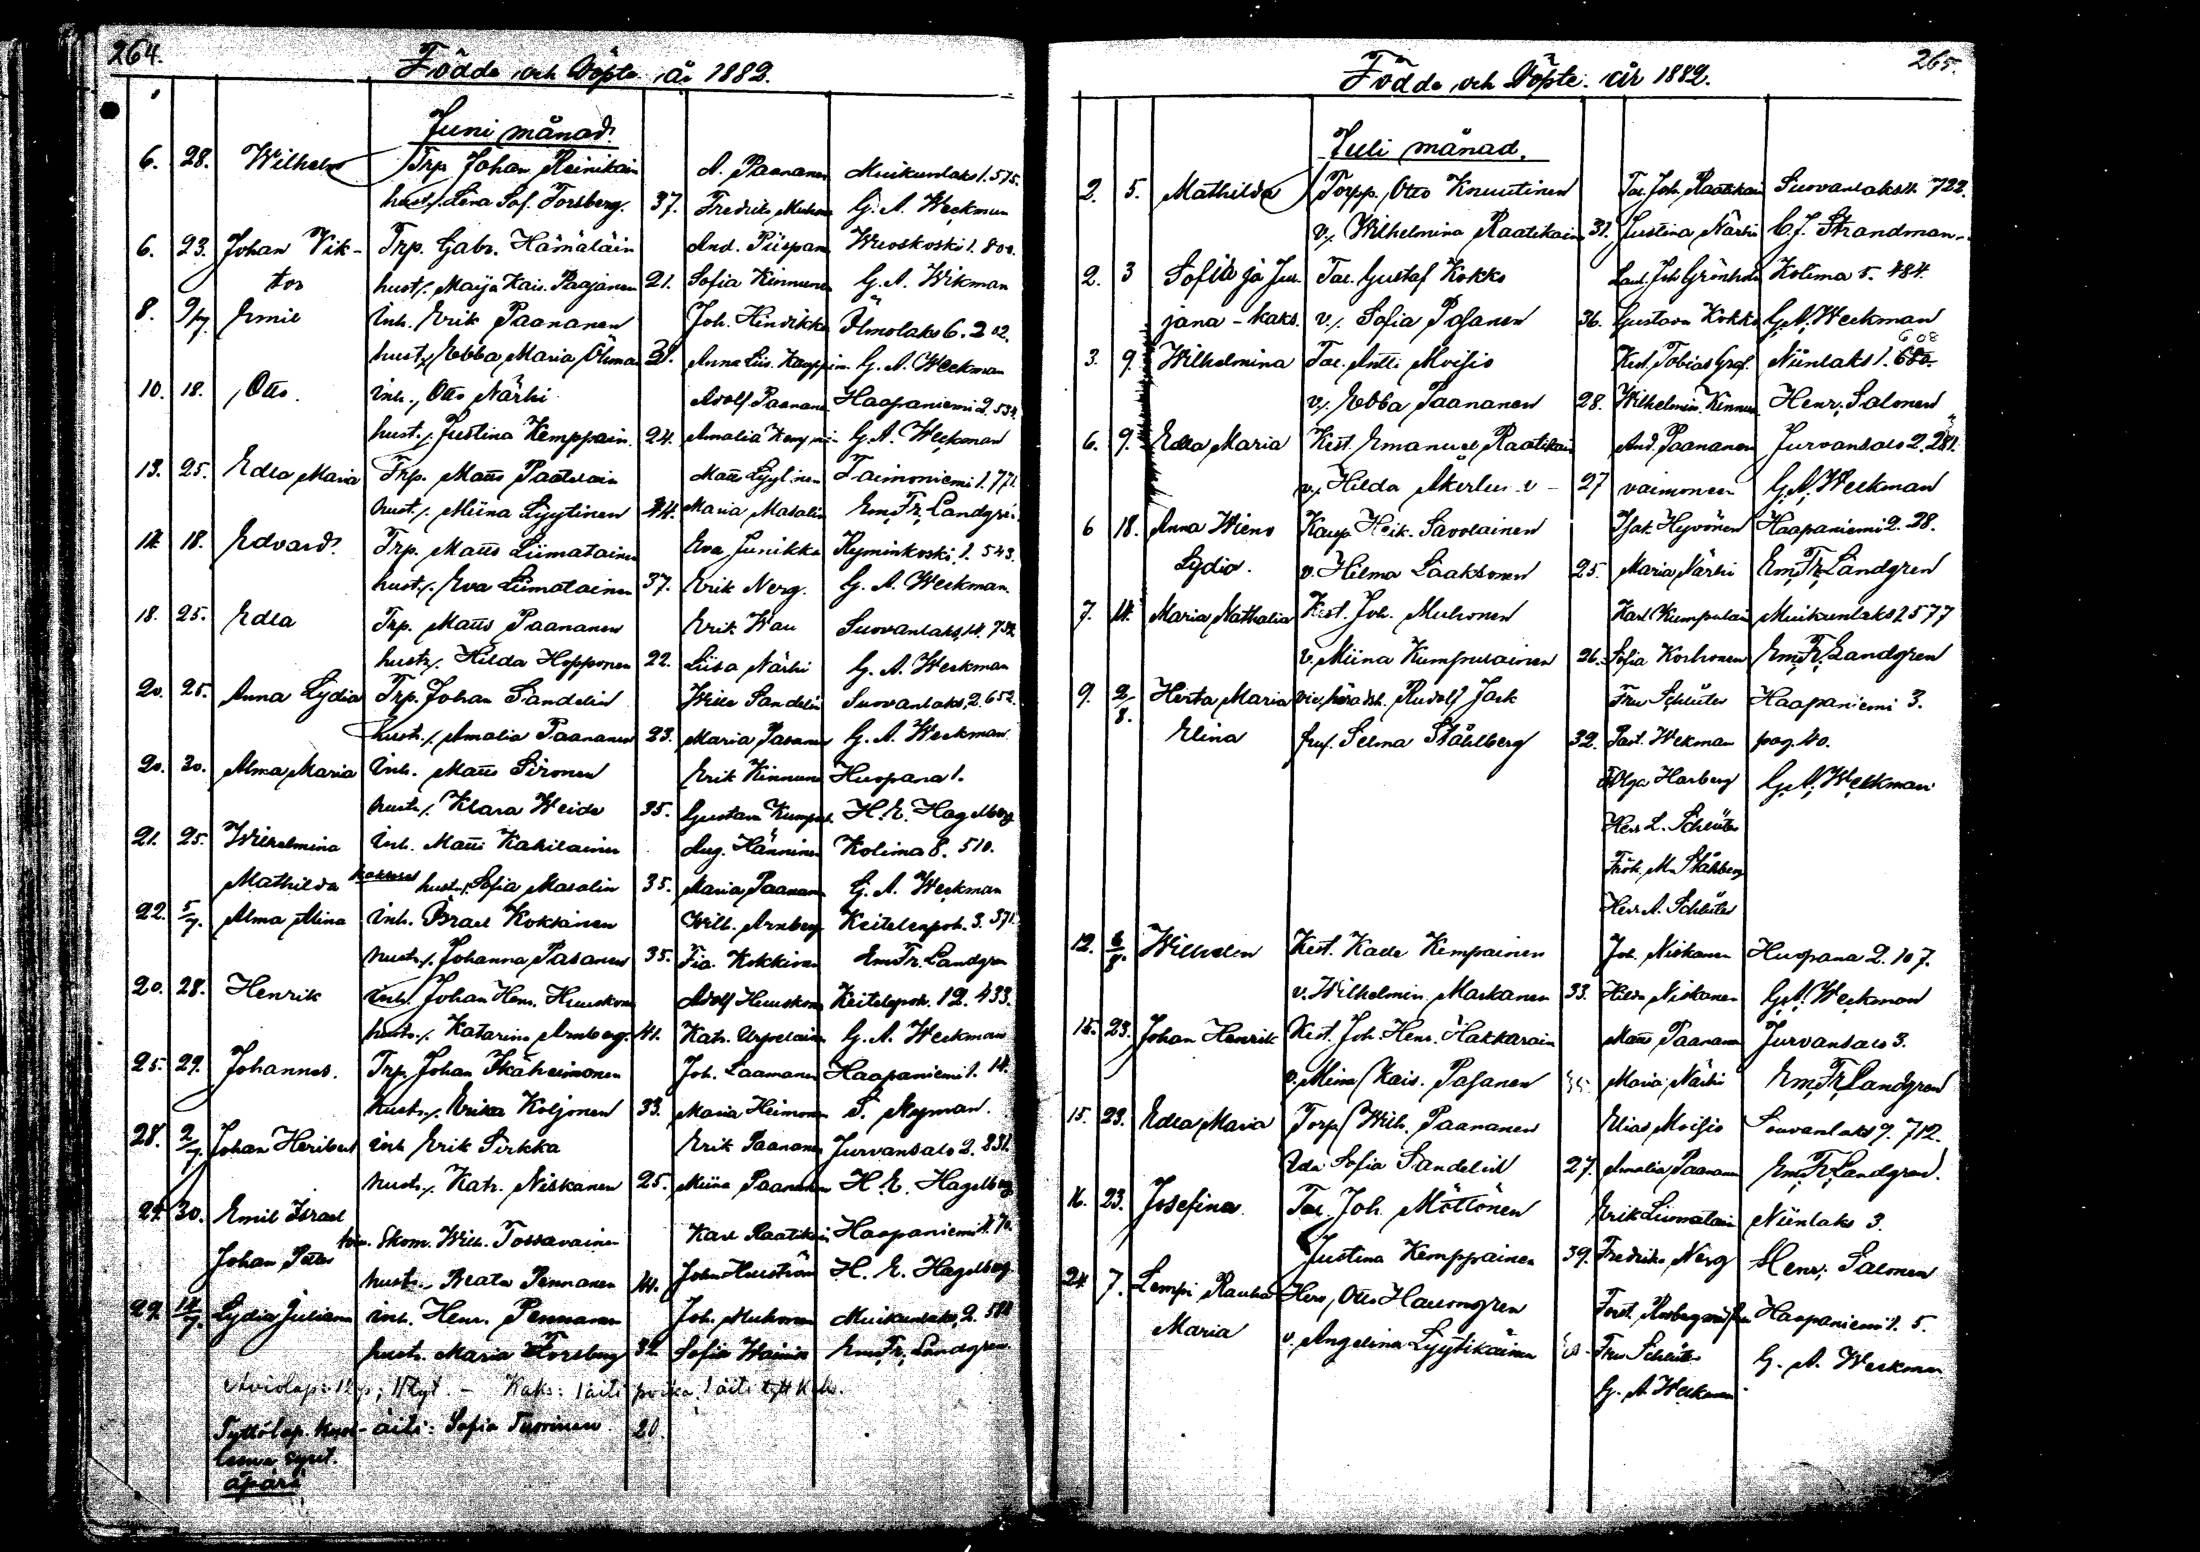 264.
Födde och Döpte år 1882.
Juni månad.
6. 28. Wilhelm Trp. Johan Reinikain A. Paananen Muikunlaks 1. 575.
hust. Lena Sof. Forsberg. 37. Fredrika G. A. Weckman
6. 23. Johan Vik- Trp. Gabr. Hämäläin And. Piispane Wuoskoski 1. 802.
tor hust. Maija Kais. Paajanen 21. Sofia Kinnunen G. A. Wikman
8. 9/7. Emil Inh. Erik Paananen Joh. Hindikka Ilmolaks 6. 202.
hust. Ebba Maria Öhman Anna Liis. G. A. Weckman
10. 18. Otto. Inh. Otto Närhi Adolf Paanane Haapaniemi 2. 534.
hust. Justina Kemppain. 24. Amalia G. A. Weckman
13. 25. Edla Maria Trp. Matts Paatelain Taimoniemi 1. 771.
hust. Miina Lyytinen 44. Maria Masalin Em. Fr. Landgre.
14. 18. Edvard. Trp. Matts Liimatainen Eva Junikka Kyminkoski 1. 543.
hust. Eva Liimatainen 37. Erik Nerg. G. A. Weckman.
18. 25. Edla Trp. Matts Paananen Erik Suovanlaks 14. 732
hust. Hilda Hopponen 22. Liisa Närhi G. A. Weckman
20. 25. Anna Lydia Trp. Johan Sandelin Wille Sandelin Suovanlaks 2. 652.
hust. Amalia Paananen 23. Maria Pasanen G. A. Weckman.
20. 30. Alma Maria Inh. Matts Sironen Erik Kinnune Huopana 1.
hust. Klara Weide 35. Gustava H. E. Hagelberg
21. 25. Wilhelmina Inh. Matti Kahilainen Aug. Hänninen Kolima 8. 510.
Mathilda hust. Sofia Masalin 35. Maria Paananen G. A. Weckman
22. 5/7. Alma Alina Inh. Israel Kokkinen Wilh. Arnberg Keitelenpoh. 3. 371.
hust. Johanna Pasanen 35. Fia. Kokkinen Em. Fr. Landgren
20. 28. Henrik Inh. Johan Henr. Huuskonen Adolf Huuskonen Keitelepoh. 12. 433.
hust. Katarina Arnberg. 41. Katr. Urpelainen G. A. Weckman
25. 29. Johannes. Trp. Johan Ikäheimonen Joh. Laamanen Haapaniemi 1. 14.
hust. Erika Koljonen 33. Maria Heimonen S. Nyman.
28. 2/7. Johan Heribert Inh Erik Sirkka Erik Paananen Jurvansalo 2. 231.
hust. Katr. Niskanen 25. Miina Paananen H. E. Hagelberg
29. 30. Emil Israel
Johan Petter Skom. Wilh. Tossavainen Karl Raatikain Haapaniemi
hust. Beata Pennanen 44. John H. E. Hagelberg
29. 14/7. Lydia Juliana Inh. Henr. Pennanen Joh. Muhonen Muikunlaks 2.
hust. Maria Forsberg 32 Sofia Em. Fr. Landgren.
Aviolap: 12 p; 11 tyt. - Kaks: 1 äiti poika, 1 äiti
Tyttölap. äiti: Sofia 20.
synt.
äpärä

265.
Födde och Döpte år 1882.
Juli månad.
2. 5. Mathilda Torpp. Otto Knuutinen Tal. Joh. Raatikain Suovanlaks 722.
v. Wilhelmina Raatikain 31. Justina Närhi C. J. Strandman.
2. 3 Sofia ja Ju- Tal. Gustaf Kokko Laut. Joh. Grönholm Kolima 5. 484.
jana - kaks. v. Sofia Pasanen 36. Gustava Kokko G. A. Weckman
3. 9. Wilhelmina Tal. Antti Moisio Kest. Tobias Graf. Niinilaks 1. 680 608
v. Ebba Paananen 28. Wilhelmin. Kinnun Henr. Salonen
6. 9. Edla Maria Kest. Emanuel Raatikain And. Paananen Jurvansalo 2. 281.
v. Hilda Åkerlu 27 vaimoneen G. A. Weckman
6 18. Anna Wieno Kaup. Heik. Savolainen Isak Hyvönen Haapaniemi 2. 28.
Lydia. v. Hilma Laaksonen 25. Maria Närhi Em. Fr. Landgren
7. 14. Maria Nathalia Kest. Joh. Muhonen Karl Kumpulain Muikunlaks 2 577
v. Miina Kumpulainen 26. Sofia Korhonen Em. Fr. Landgren
9. 2/8. Herta Maria vic. häradsh. Rudolf Jack Fru Schlüter Haapaniemi 3.
Elina fru. Selma Ståhlberg 32. Past. Wekman pag. 40.
F. Olga Harberg G. A. Weckman
Herr L. Schlüter
Frök. M. Ståhlberg
Herr A. Schlüter
12. 6/8. Wilhelm Kest. Kalle Kempainen Joh. Niskanen Huopana 2. 107.
v. Wilhelmin. Markanen 33. Hilda Niskanen G. A. Weckman
15. 23. Johan Henrik Kest. Joh. Henr. Hakkarain Matts Paananen Jurvansalo 3.
v. Miina Kais. Pasanen Maria Närhi Em. Fr. Landgren
15. 23. Edla Maria Torp. Wilh. Paananen Elias Moisio Souvanlaks 9. 712.
Ida Sofia Sandelin 27. Amalia Paananen Em. Fr. Landgren.
16. 23. Josefina. Tal. Joh. Möttönen Erik Liimatain Niinilaks 3.
Justina Kemppainen 39. Fredrika Nerg Henr. Salonen
24 7. Lempi Rauha Herr, Otto Hammgren Forst. Haapaniemi 1. 5.
Maria v. Angelina Lyytikäinen Fru Schlüter G. A. Weckman
G. A. Weckman